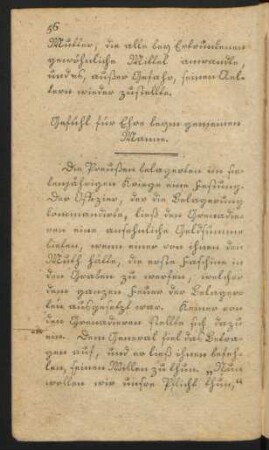 56
Mutter, die alle bey Ertrunkenen
gewöhnliche Mittel anwandte,
und es, außer Gefahr, seinen Ael-
tern wieder zustellte.
Gefühl für Ehre beym gemeinen
Manne.
Die Preußen belagerten im sie-
benjährigen Kriege eine Festung.
Der Offizier, der die Belagerung
kommandirte, ließ den Grenadie-
ren eine ansehnliche Geldsumme
bieten, wenn einer von ihnen den
Muth hätte, die erste Faschine in
den Graben zu werfen, welcher
dem ganzen Feuer der Belager-
ten ausgesetzt war. Keiner von
den Grenadieren stellte sich dazu
ein. Dem General fiel das Betra-
gen auf, und er ließ ihnen befeh-
len, seinen Willen zu thun. „Nun
wollen wir unsre Pflicht thun,“